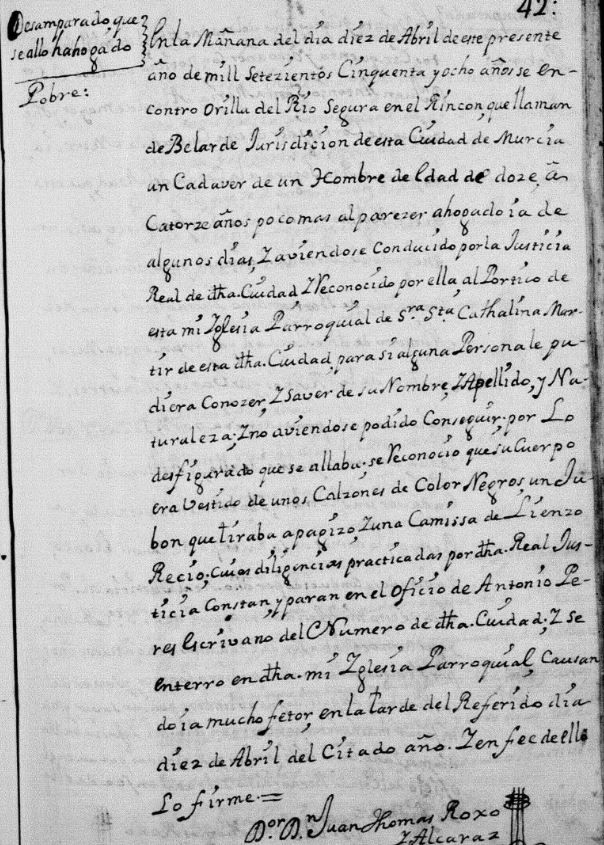 42:
Desamparado que
se allo hahogado
Pobre:
En la Mañana del dia diez de Abril de este presente
año de mill Setezientos Cinquenta y ocho años se en-
contro Orilla del Rio Segura en el Rincon que llaman
de Belarde Jurisdicion de esta Ciudad de Murcia
un Cadaver de un Hombre de Edad de doze, â
Catorze años poco mas al parezer ahogado ia de
algunos dias, Z aviendose Conducido por la Justicia
Real de dha. Ciudad Z Reconocido por ella al Portico de
esta mi Yglesia Parroquial de Sra. Sta. Cathalina Mar-
tir de esta dha. Ciudad para si alguna Persona le pu-
diera Conozer, Z Saver de su Nombre, Z Apellido, y Na-
turaleza; Z no aviendose podido Conseguir por Lo
desfigurado que se allaba, se Reconocio que su Cuerpo
era Vestido de unos Calzones de Color Negros un Ju-
bon que tiraba a pagizo Z una Camissa de Lienzo
Recio; Cuias diligencias practicadas por dha. Real Jus-
ticia Constan y paran en el Oficio de Antonio Pe-
res Escrivano del Numero de dha. Ciudad. Z se
enterro en dha. mi Yglesia Parroquial Causan
do ia mucho fetor, en la tarde del Referido dia
diez de Abril del Citado año. Z en fee de ello
Lo firme.=
Dor. Dn. Juan Thomas Roxo
Z Alcaraz